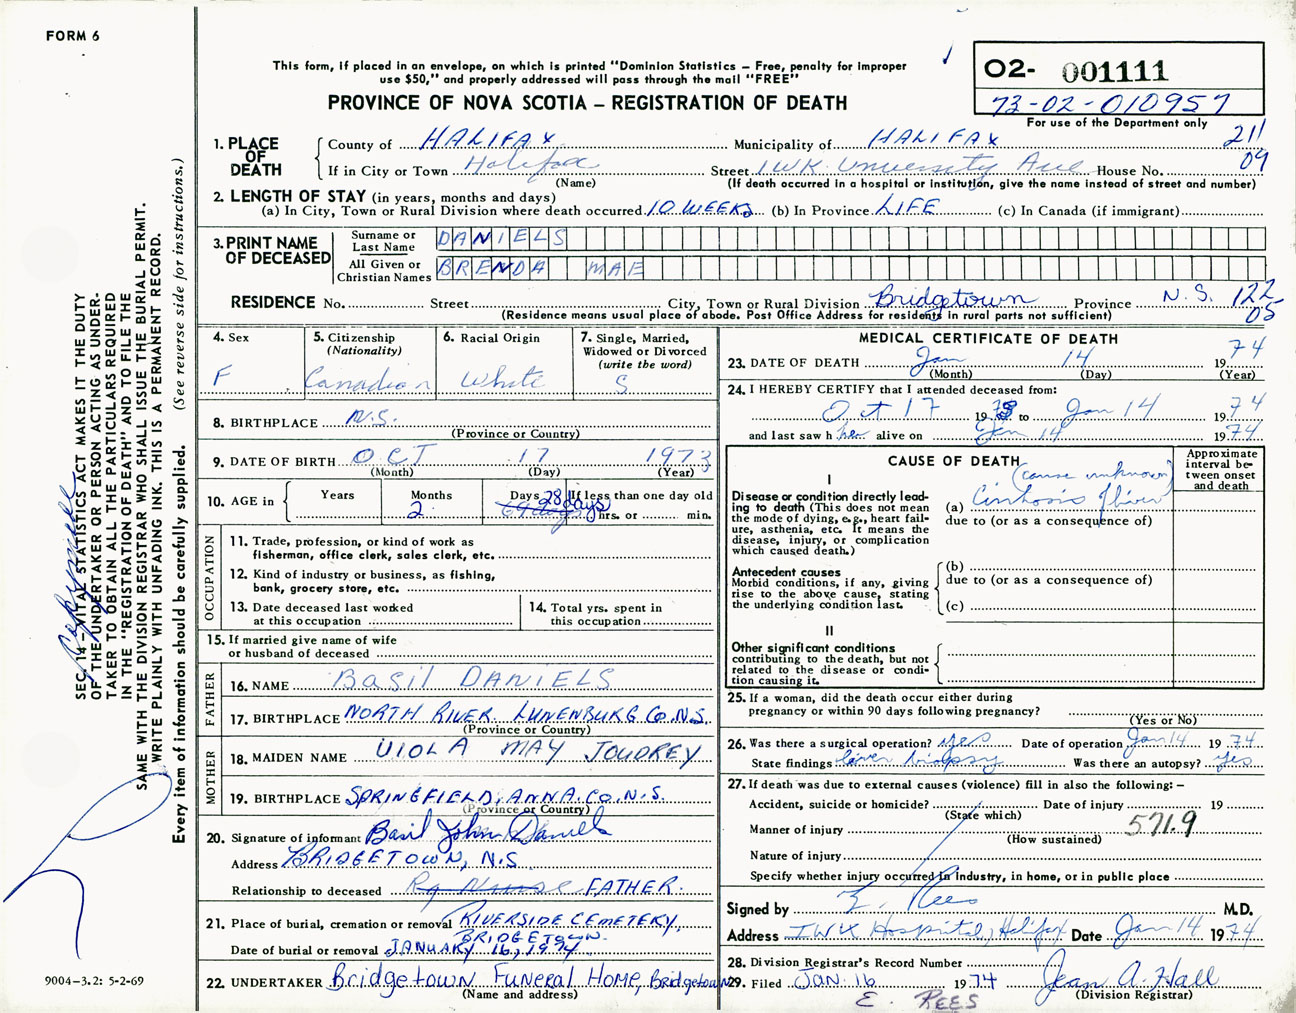 FORM 6
This form, if placed in an envelope, on which is printed "Dominion Statistics – Free, penalty for improper
use $50," and properly addressed will pass through the mail "FREE"
PROVINCE OF NOVA SCOTIA – REGISTRATION OF DEATH
02- 001111
73-02-010957
For use of the Department only
211
09
1. PLACE OF DEATH
County of HALIFAX Municipality of HALIFAX
If in City or Town Halifax Street IWK University Ave House No.
(Name) (If death occurred in a hospital or institution, give the name instead of street and number)
2. LENGTH OF STAY (in years, months and days)
(a) In City, Town or Rural Division where death occurred 10 WEEKS (b) In Province LIFE (c) In Canada (if immigrant)
3. PRINT NAME OF DECEASED
Surname or Last Name DANIELS
All Given or Christian Names BRENDA MAE
RESIDENCE No. Street City, Town or Rural Division Bridgetown Province N.S. 122
05
(Residence means usual place of abode. Post Office Address for residents in rural parts not sufficient)
4. Sex
F
5. Citizenship
(Nationality)
Canadian
6. Racial Origin
White
7. Single, Married,
Widowed or Divorced
(write the word)
S
8. BIRTHPLACE N.S.
(Province or Country)
9. DATE OF BIRTH OCT 17 1973
(Month) (Day) (Year)
10. AGE in Years Months Days If less than one day old
2 28 days hrs. or min.
OCCUPATION
11. Trade, profession, or kind of work as
fisherman, office clerk, sales clerk, etc.
12. Kind of industry or business, as fishing,
bank, grocery store, etc.
13. Date deceased last worked
at this occupation
14. Total yrs. spent in
this occupation
15. If married give name of wife
or husband of deceased
FATHER
16. NAME BASIL DANIELS
17. BIRTHPLACE NORTH RIVER LUNENBURG CO. N.S.
(Province or Country)
MOTHER
18. MAIDEN NAME VIOLA MAY JOUDREY
19. BIRTHPLACE SPRINGFIELD, ANNA. CO. N.S.
(Province or Country)
20. Signature of informant Basil John Daniels
Address BRIDGETOWN, N.S.
Relationship to deceased FATHER.
21. Place of burial, cremation or removal RIVERSIDE CEMETERY,
BRIDGETOWN.
Date of burial or removal JANUARY 16, 1974
22. UNDERTAKER Bridgetown Funeral Home, Bridgetown
(Name and address)
MEDICAL CERTIFICATE OF DEATH
23. DATE OF DEATH Jan 14 1974
(Month) (Day) (Year)
24. I HEREBY CERTIFY that I attended deceased from:
Oct 17 1973 to Jan 14 1974
and last saw her alive on Jan 14 1974
CAUSE OF DEATH
Approximate
interval be-
tween onset
and death
I
Disease or condition directly lead-
ing to death (This does not mean
the mode of dying, e.g., heart fail-
ure, asthenia, etc. It means the
disease, injury, or complication
which caused death.)
(cause unknown)
(a) Cirrhosis of liver
due to (or as a consequence of)
Antecedent causes
Morbid conditions, if any, giving
rise to the above cause, stating
the underlying condition last.
(b)
due to (or as a consequence of)
(c)
II
Other significant conditions
contributing to the death, but not
related to the disease or condi-
tion causing it.
25. If a woman, did the death occur either during
pregnancy or within 90 days following pregnancy?
(Yes or No)
26. Was there a surgical operation? yes Date of operation Jan 14 1974
State findings liver biopsy Was there an autopsy? yes
27. If death was due to external causes (violence) fill in also the following: –
Accident, suicide or homicide? Date of injury 19
(State which)
571.9
Manner of injury
(How sustained)
Nature of injury
Specify whether injury occurred in industry, in home, or in public place
Signed by E. Rees M.D.
Address IWK Hospital, Halifax Date Jan 14 1974
28. Division Registrar's Record Number
29. Filed JAN. 16 1974 Jean A. Hall
(Division Registrar)
E. REES
SEC. 14 – VITAL STATISTICS ACT MAKES IT THE DUTY
OF THE UNDERTAKER OR PERSON ACTING AS UNDER-
TAKER TO OBTAIN ALL THE PARTICULARS REQUIRED
IN THE "REGISTRATION OF DEATH" AND TO FILE THE
SAME WITH THE DIVISION REGISTRAR WHO SHALL ISSUE THE BURIAL PERMIT.
WRITE PLAINLY WITH UNFADING INK. THIS IS A PERMANENT RECORD.
Every item of information should be carefully supplied. (See reverse side for instructions.)
9004-3.2: 5-2-69